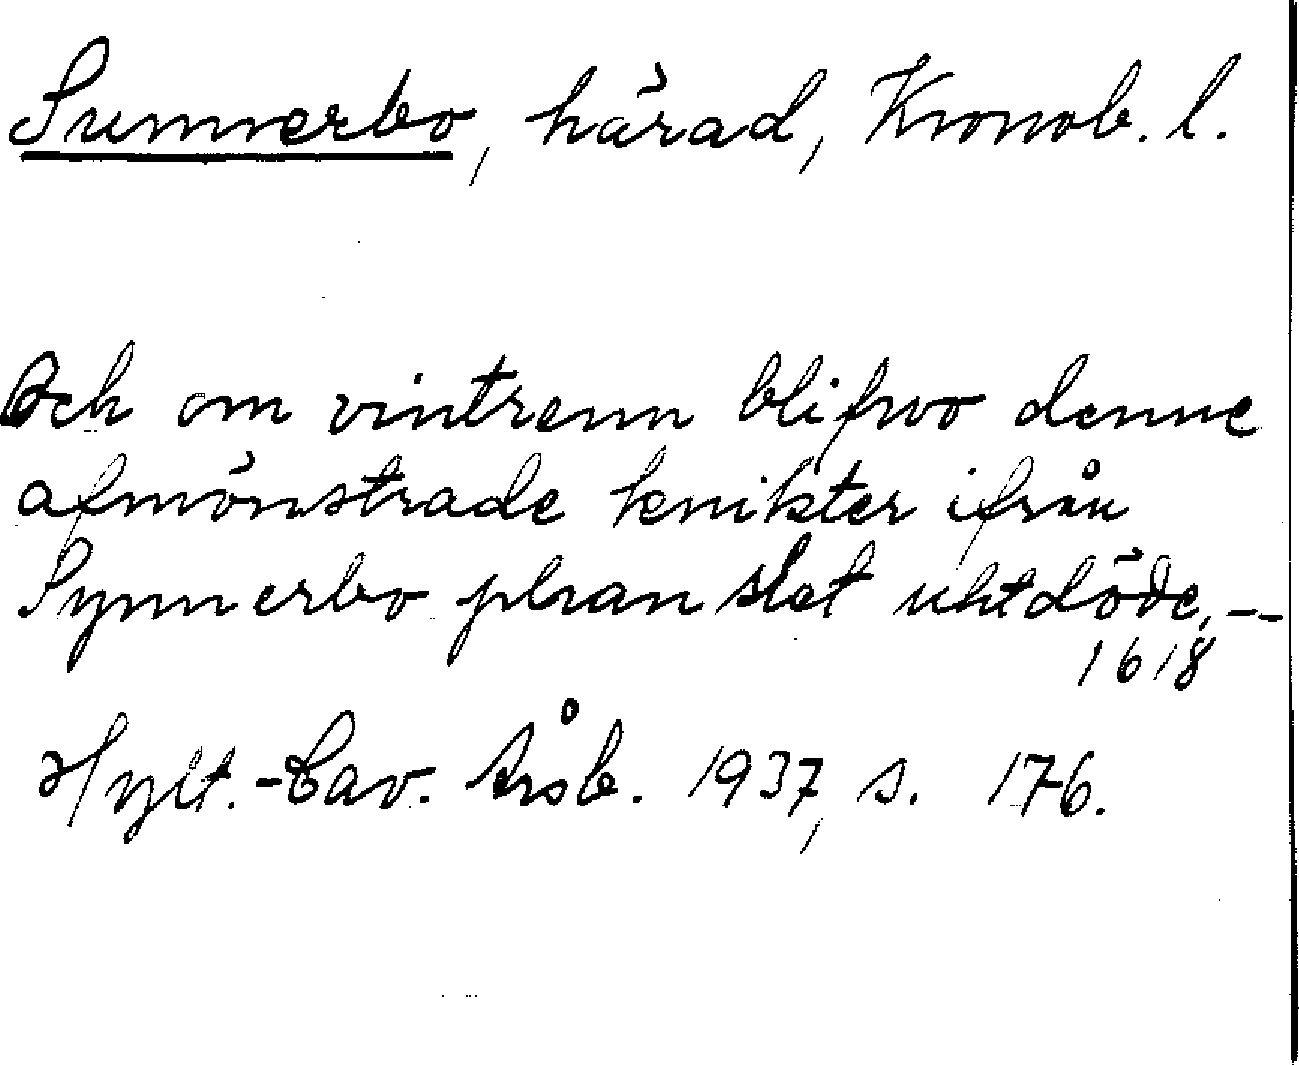 Sunnerbo, härad, Kronob. l.
Och om vintrenn blifwo denne
afmönstrade knikter ifrån
Synnerbo plran slet uhtdöde, --
1618
Hylt.-Cav. Årsb. 1937, s. 176.